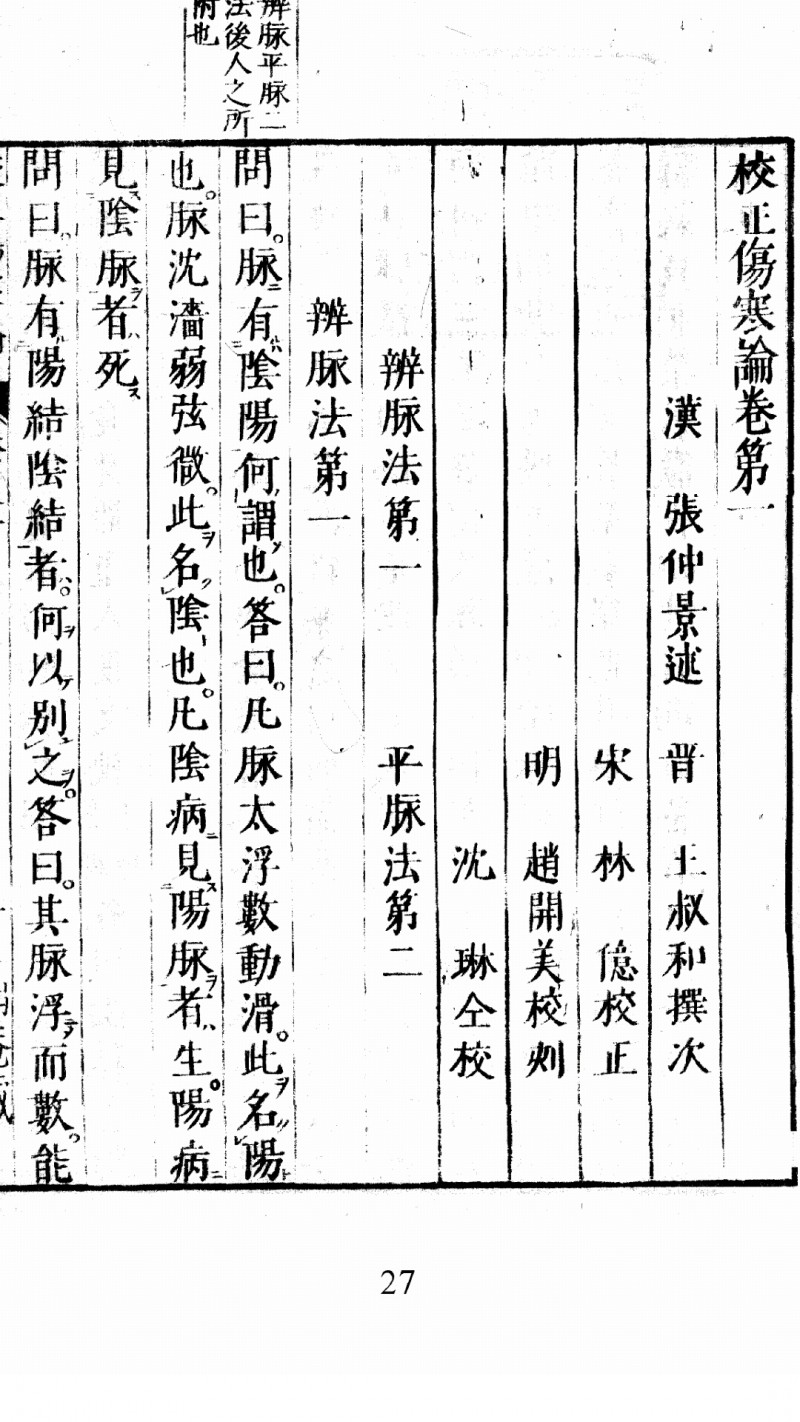 辨脉平脉二
法後人之所
附也
校正傷寒論卷第一
漢 張仲景述 晋 王叔和撰次
宋 林 億校正
明 趙開美校刻
沈 琳仝校
辨脉法第一 平脉法第二
辨脉法第一
問曰。脉有陰陽何謂也。答曰。凡脉太浮數動滑。此名陽
也。脉沈濇弱弦微。此名陰也。凡陰病見陽脉者生。陽病
見陰脉者死
問曰。脉有陽結陰結者。何以別之。答曰。其脉浮而數。能
27